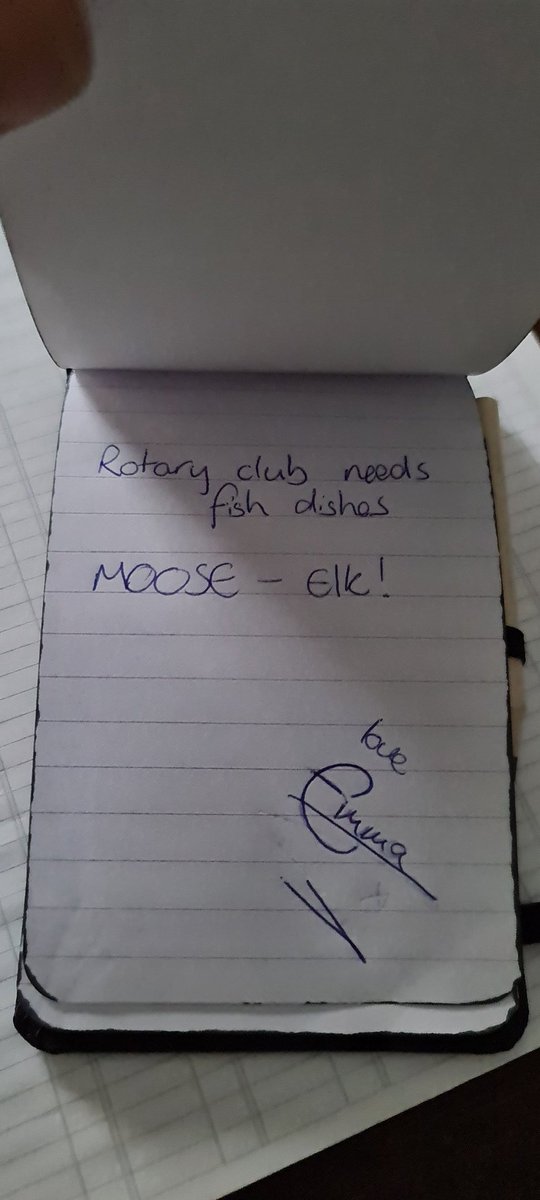 Rotary club needs
fish dishes
MOOSE - Elk!
love
Emma